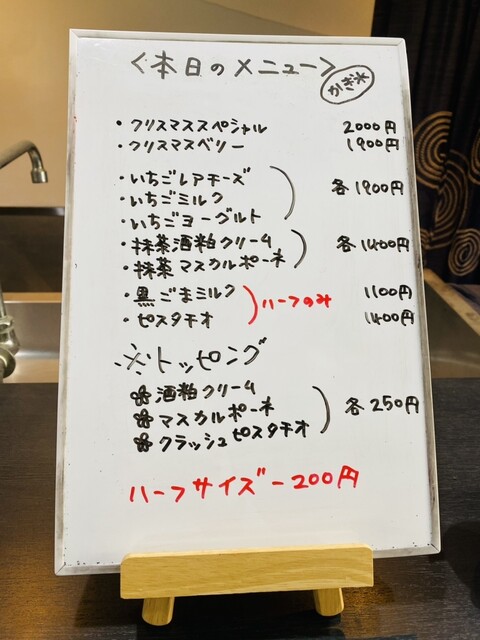 〈本日のメニュー〉
かき氷
・クリスマススペシャル 2000円
・クリスマスベリー 1900円
・いちごレアチーズ
・いちごミルク 各1900円
・いちごヨーグルト
・抹茶酒粕クリーム 各1400円
・抹茶マスカルポーネ
・黒ごまミルク 1100円
ハーフのみ
・ピスタチオ 1400円
※トッピング
酒粕クリーム
マスカルポーネ 各250円
クラッシュピスタチオ
ハーフサイズ-200円